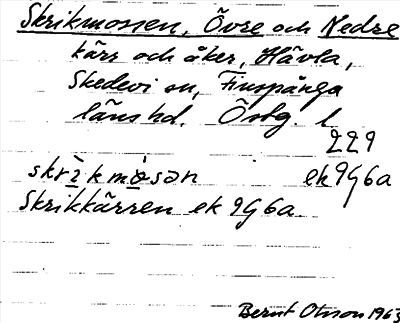 Skrikmossen, Övre och Nedre
kärr och åker, Hävla,
Skedevi sn, Finspånga
läns hd. Östg. l
229
skrìkmɷ̀sən ek 9G6a
Skrikkärren ek 9G6a
Bernt Olsson 1963